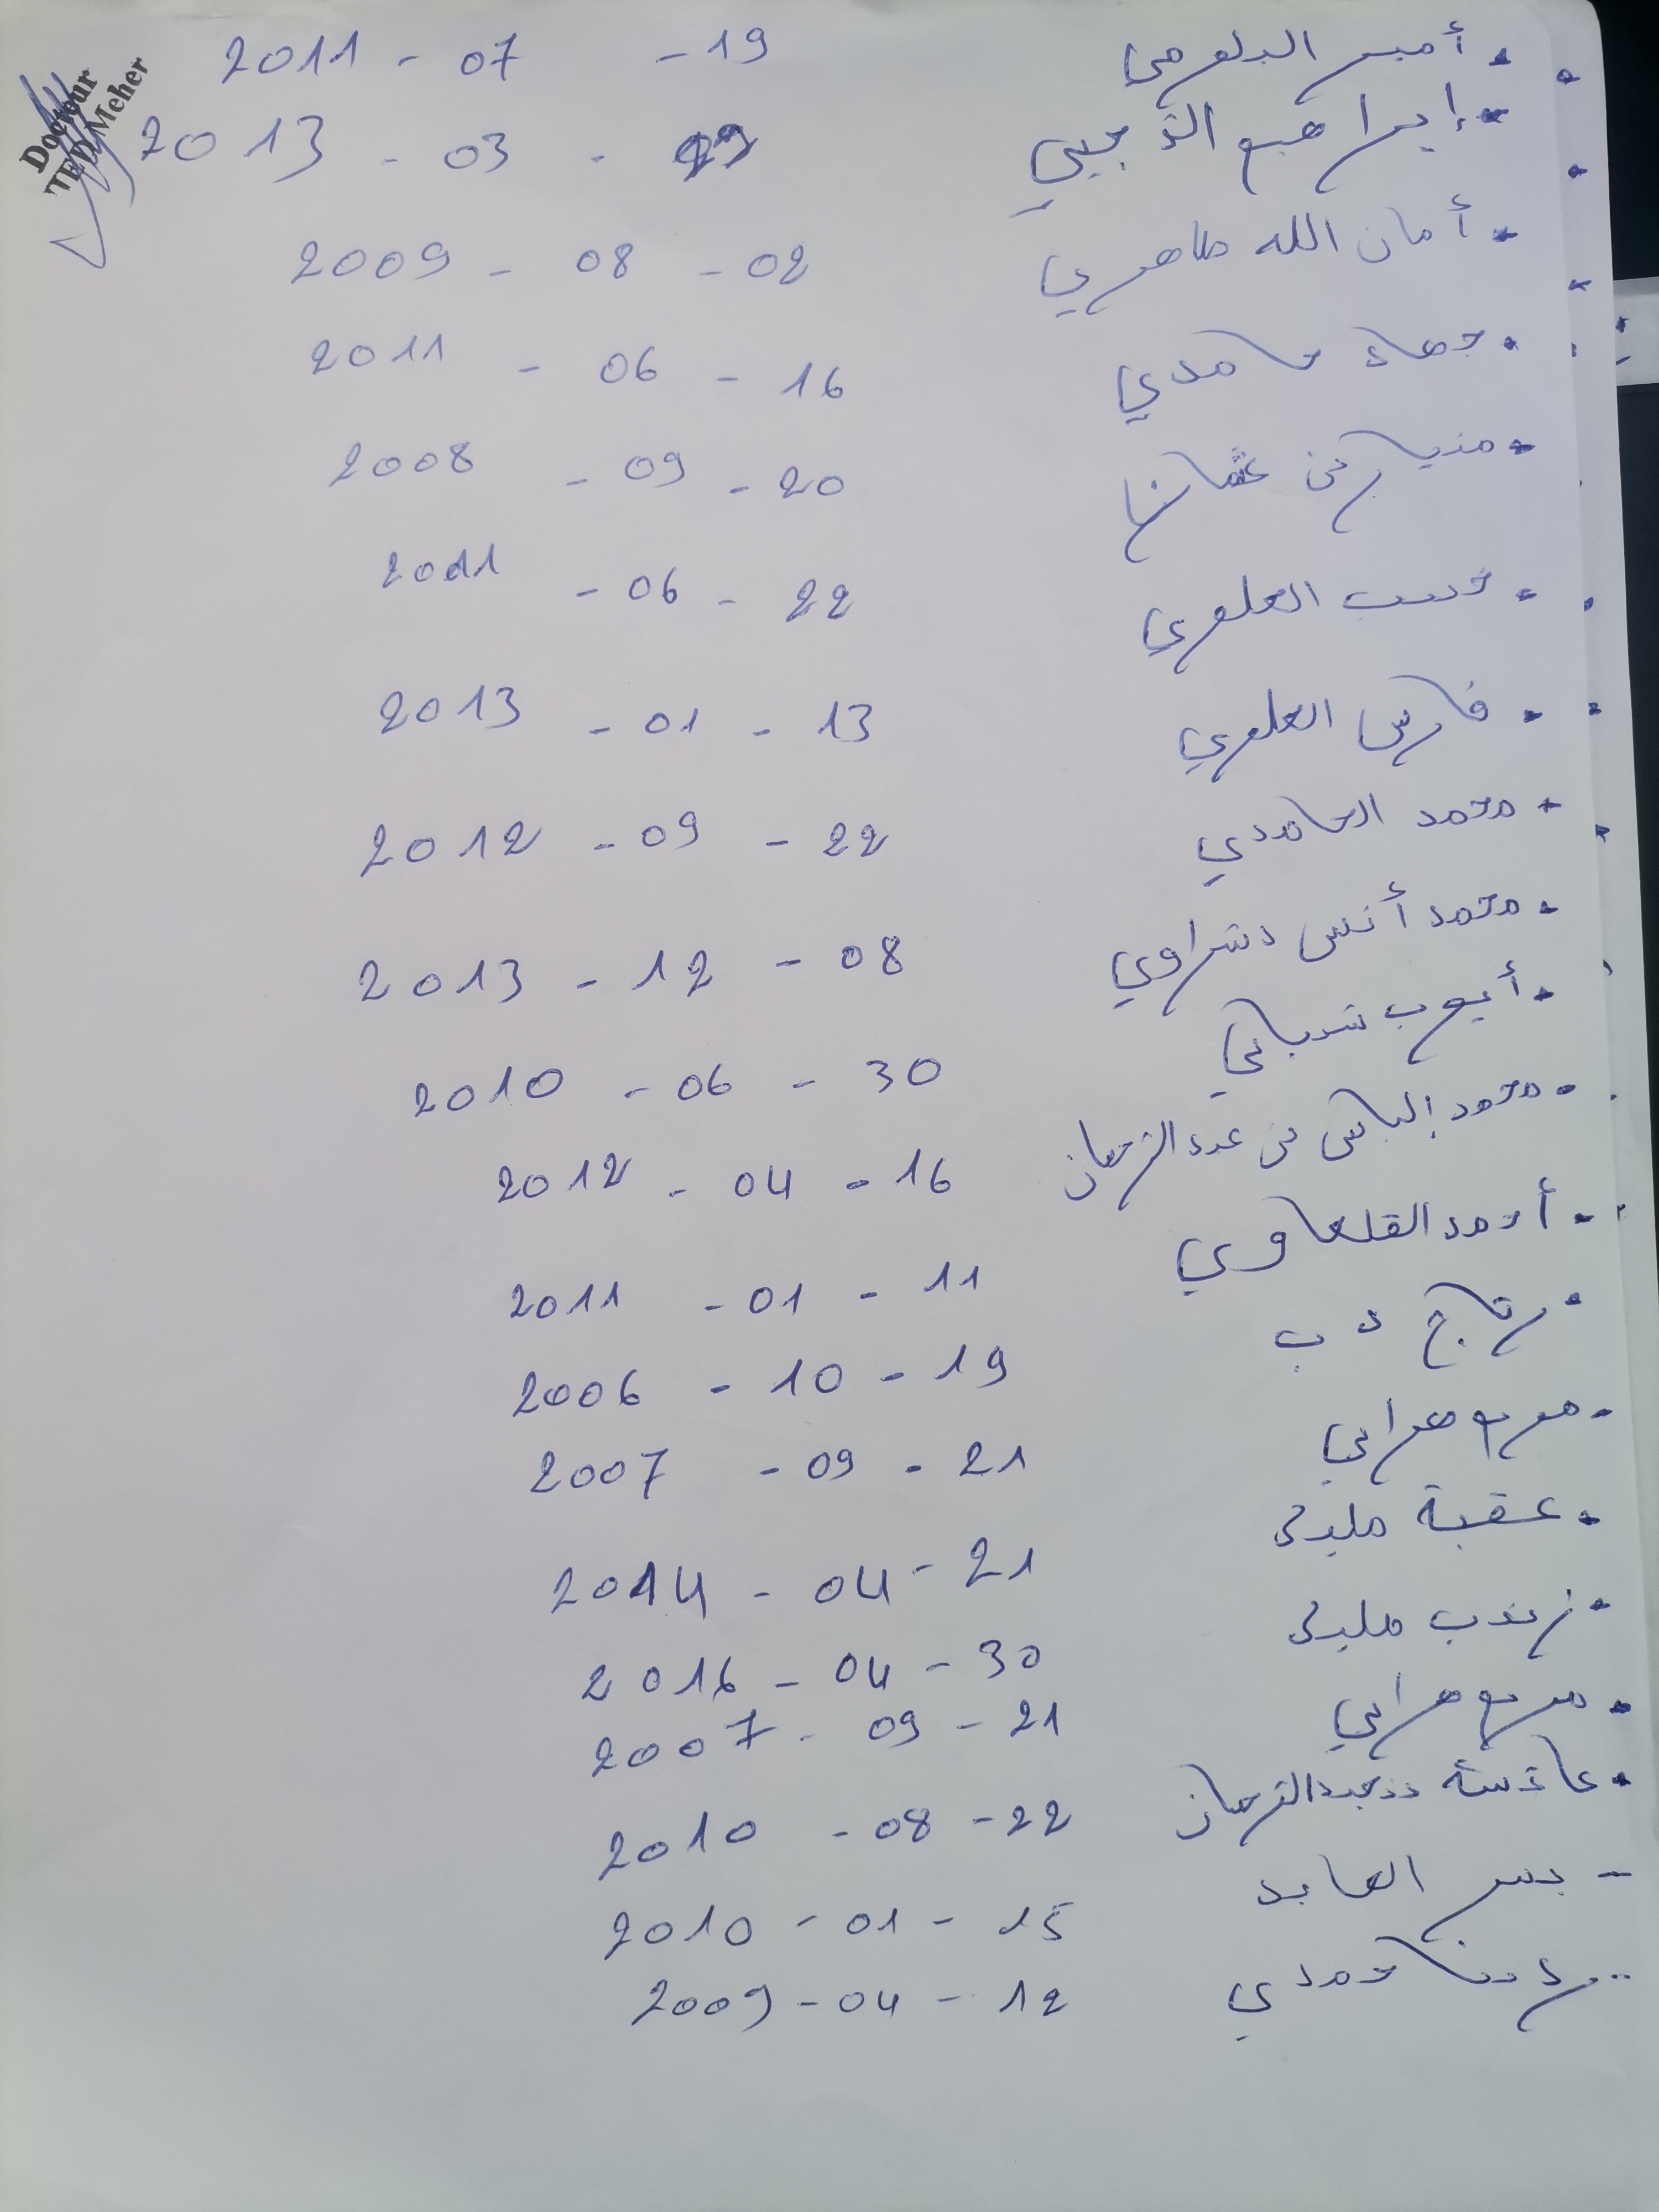 Docteur
TEDZ Meher
. أمير البلومي 19 - 07 - 2011
- إبراهيم الذجيبي - 03 - 2013
- أمان الله طاهري 02 - 08 - 2009
. جهاد حامدي 16 - 06 - 2011
- من عثمان 20 - 09 - 2008
. العلوي 22 - 06 - 2011
. فارس العلوي 13 - 01 - 2013
- محمد الحامدي 22 - 09 - 2012
- محمد أنس دشراوي 08 - 12 - 2013
. أيوب شيباني 30 - 06 - 2010
- محمد إلياس بن عبد الرحمان 16 - 04 - 2012
- أحمد القلعاوي 11 - 01 - 2011
. 19 - 10 - 2006
- مريم هرابي 21 - 09 - 2007
. عقبة مليكي 21 - 04 - 2014
. زينب مليكي 30 - 04 - 2016
. مريم هرابي 21 - 09 - 2007
. عائشة بن عبد الرحمان 22 - 08 - 2010
- يسر العابد 15 - 01 - 2010
- حمدي 12 - 04 - 2009